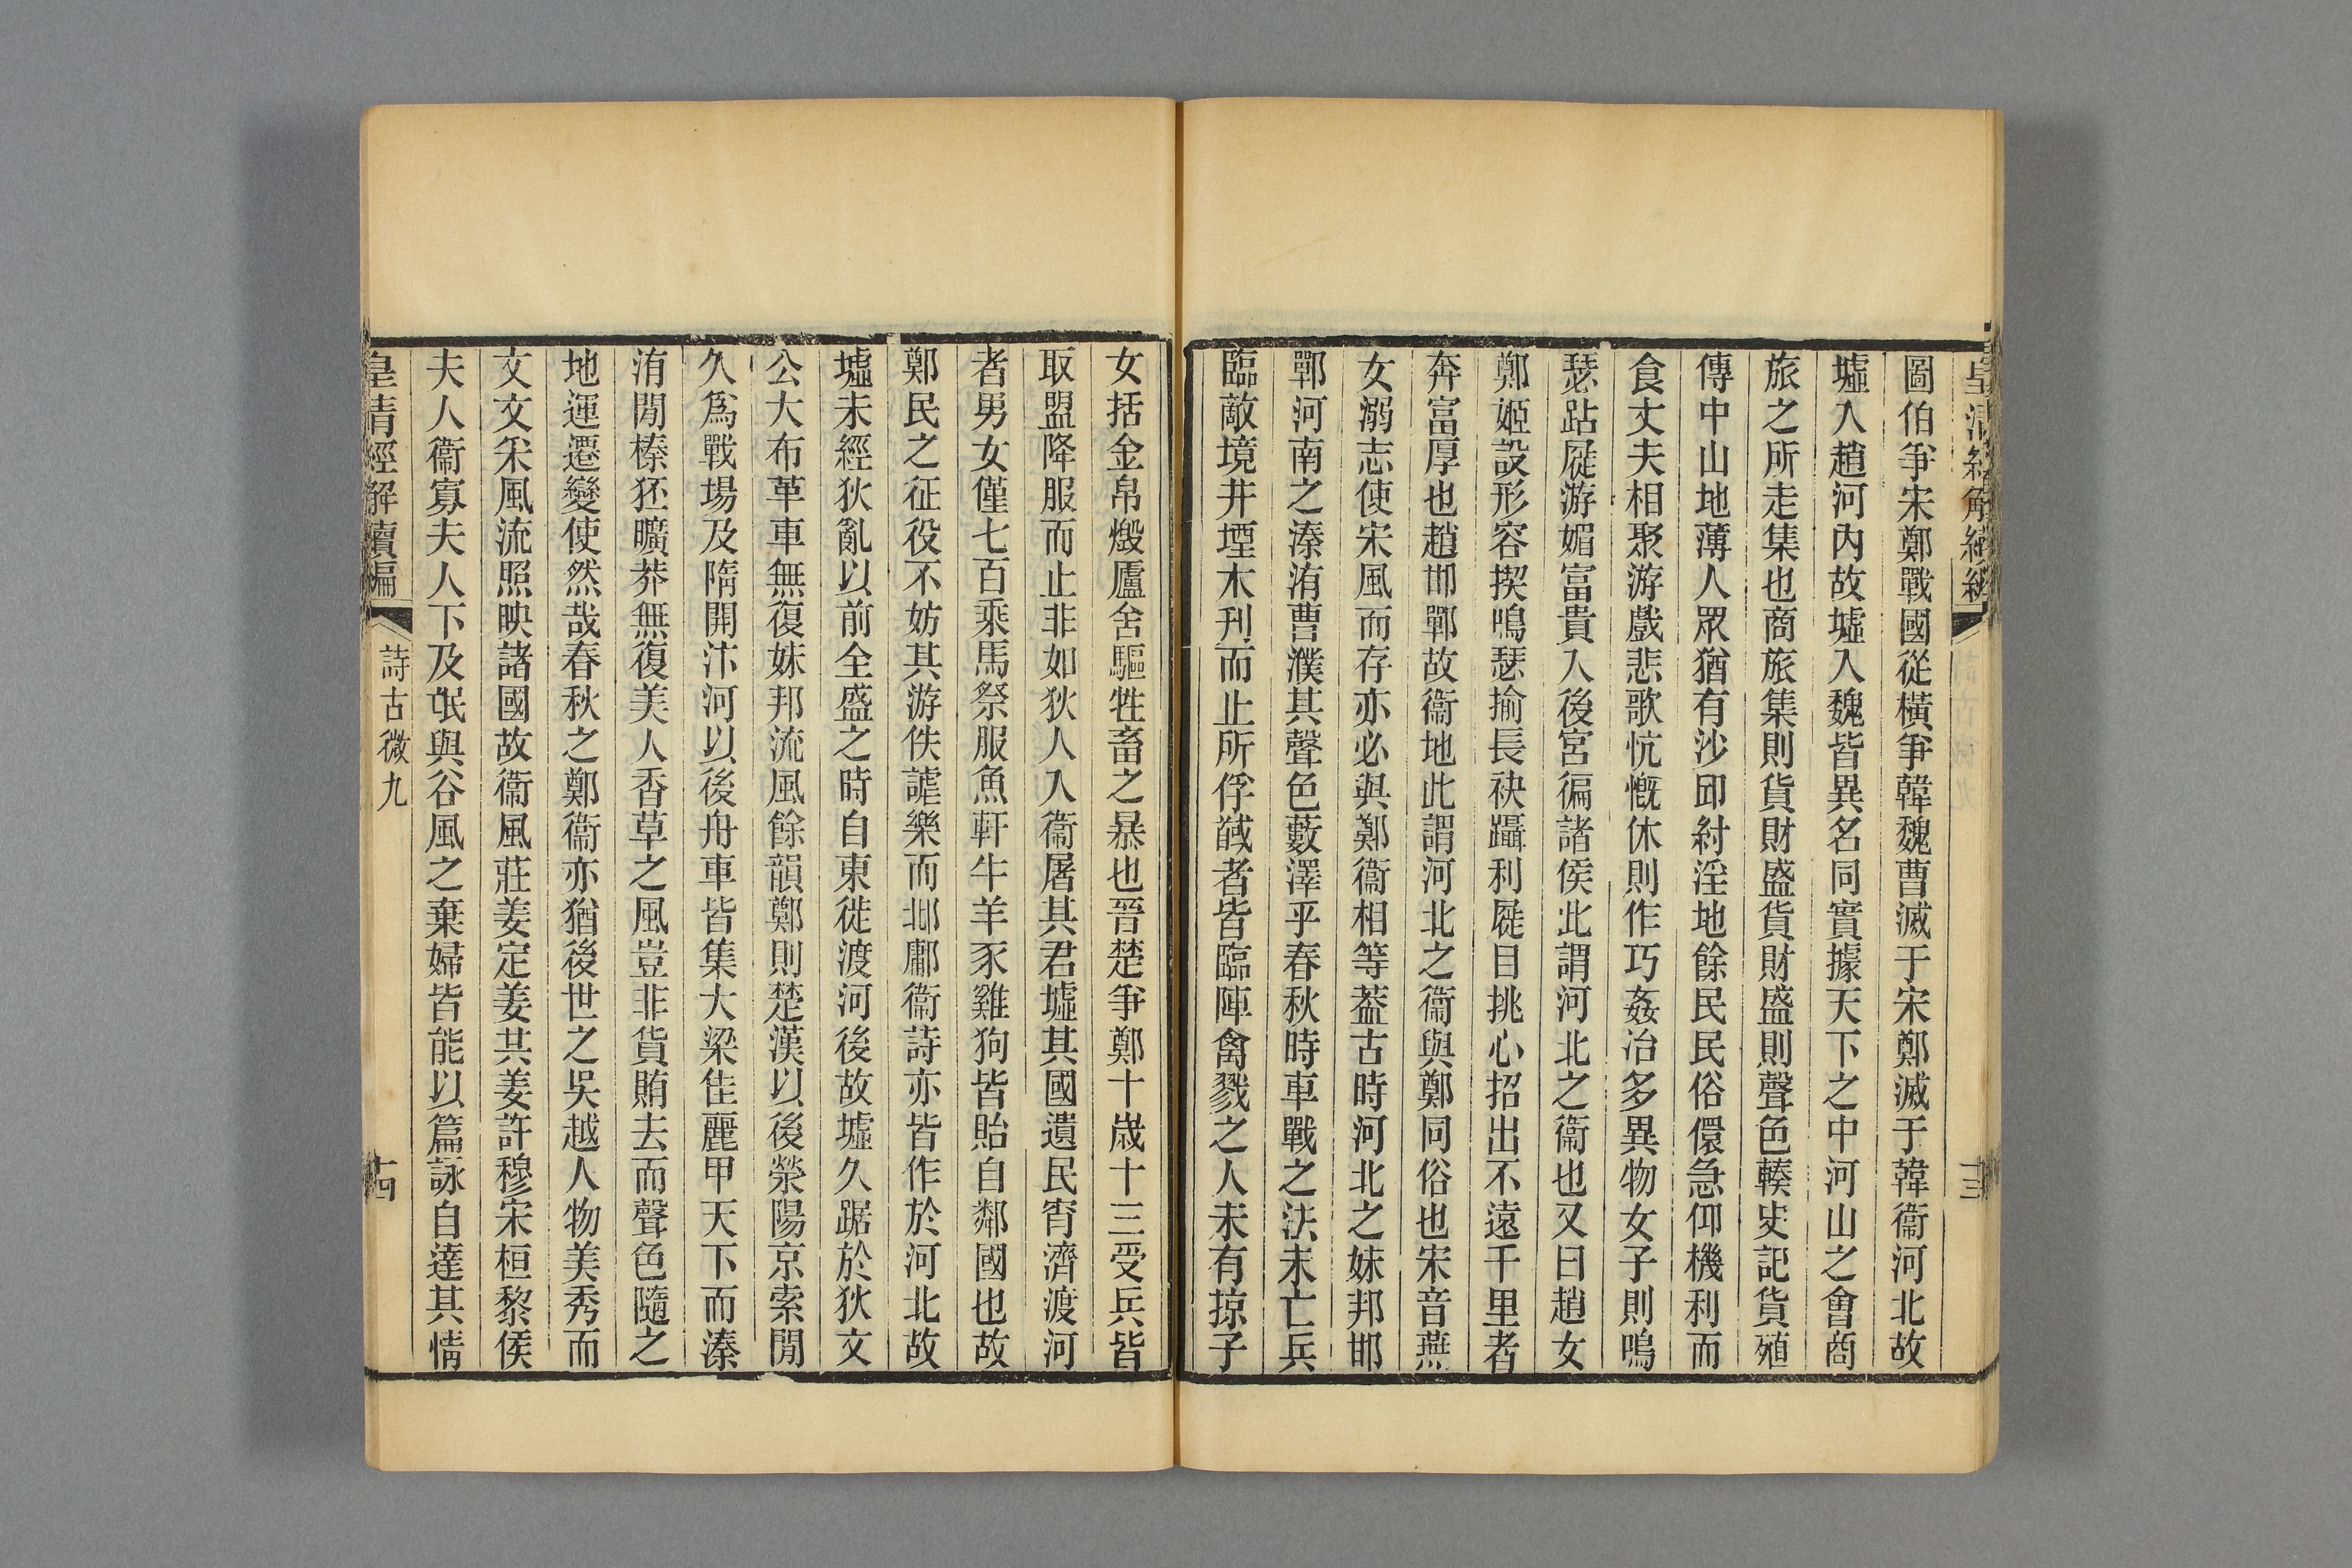 皇清經解續編
十三
圖伯爭宋鄭戰國從橫爭韓魏曹滅于宋鄭滅于韓衞河北故
墟入趙河內故墟入魏皆異名同實據天下之中河山之會商
旅之所走集也商旅集則貨財盛貨財盛則聲色輳史記貨殖
傳中山地薄人眾猶有沙邱紂淫地餘民民俗儇急仰機利而
食丈夫相聚游戲悲歌忼慨休則作巧姦冶多異物女子則鳴
瑟跕屣游媚富貴入後宮徧諸侯此謂河北之衞也又曰趙女
鄭姬設形容揳鳴瑟揄長袂躡利屣目挑心招出不遠千里者
奔富厚也趙邯鄲故衞地此謂河北之衞與鄭同俗也宋音燕
女溺志使宋風而存亦必與鄭衞相等葢古時河北之妹邦邯
鄲河南之溱洧曹濮其聲色藪澤乎春秋時車戰之法未亡兵
臨敵境井堙木刋而止所俘馘者皆臨陣禽戮之人未有掠子
女括金帛燬廬舍驅牲畜之暴也晉楚爭鄭十歲十三受兵皆
取盟降服而止非如狄人入衞屠其君墟其國遺民宵濟渡河
者男女僅七百乘馬祭服魚軒牛羊豕雞狗皆貽自鄰國也故
鄭民之征役不妨其游佚謔樂而邶鄘衞詩亦皆作於河北故
墟未經狄亂以前全盛之時自東徙渡河後故墟久踞於狄文
公大布革車無復妹邦流風餘韻鄭則楚漢以後滎陽京索閒
久爲戰場及隋開汴河以後舟車皆集大梁佳麗甲天下而溱
洧閒榛狉曠莽無復美人香草之風豈非貨賄去而聲色隨之
地運遷變使然哉春秋之鄭衞亦猶後世之吳越人物美秀而
文文采風流照映諸國故衞風莊姜定姜共姜許穆宋桓黎侯
夫人衞寡夫人下及氓與谷風之棄婦皆能以篇詠自達其情
皇清經解續編
詩古微九
十四